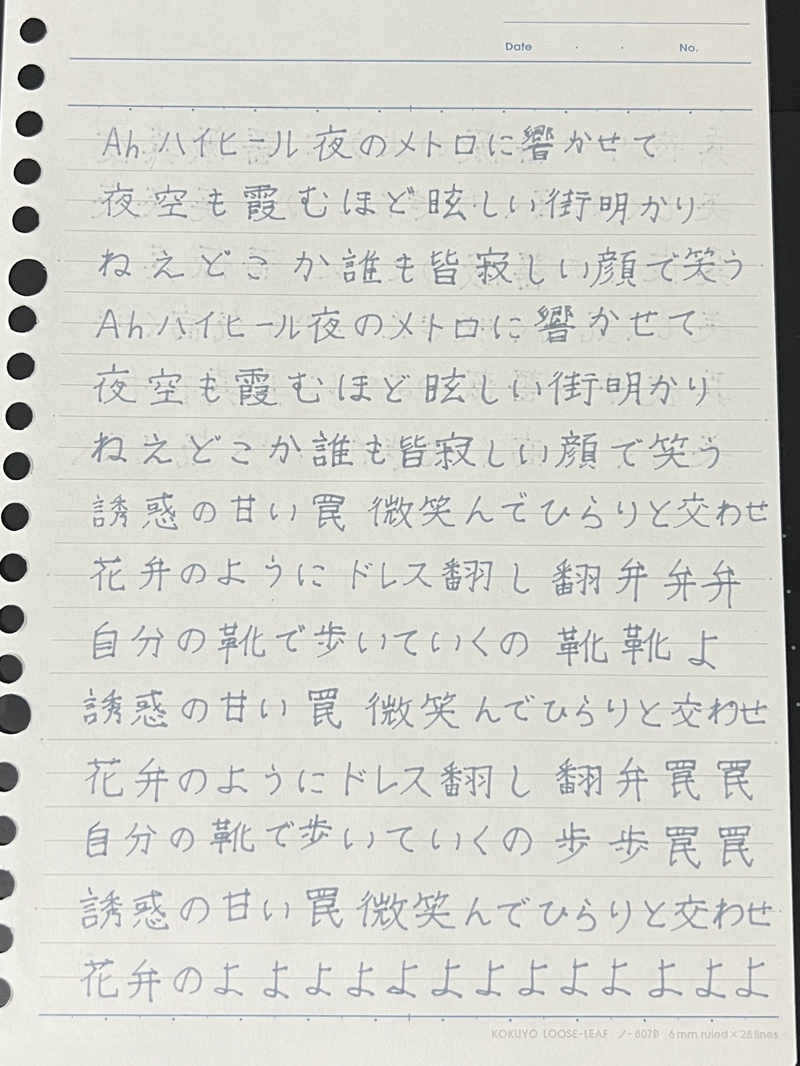 Date ・ ・ No.
Ah ハイヒール 夜のメトロに響かせて
夜空も霞むほど眩しい街明かり
ねえどこか誰も皆寂しい顔で笑う
Ah ハイヒール夜のメトロに響かせて
夜空も霞むほど眩しい街明かり
ねえどこか誰も皆寂しい顔で笑う
誘惑の甘い罠 微笑んでひらりと交わせ
花弁のように ドレス翻し 翻 弁 弁弁
自分の靴で歩いていくの 靴 靴 よ
誘惑の甘い罠 微笑んでひらりと交わせ
花弁のようにドレス翻し 翻 弁 罠 罠
自分の靴で歩いていくの 歩 歩 罠 罠
誘惑の甘い罠 微笑んでひらりと交わせ
花弁のよよよよよよよよよよよよよ
KOKUYO LOOSE-LEAF ノ-807B 6mm ruled×28 lines